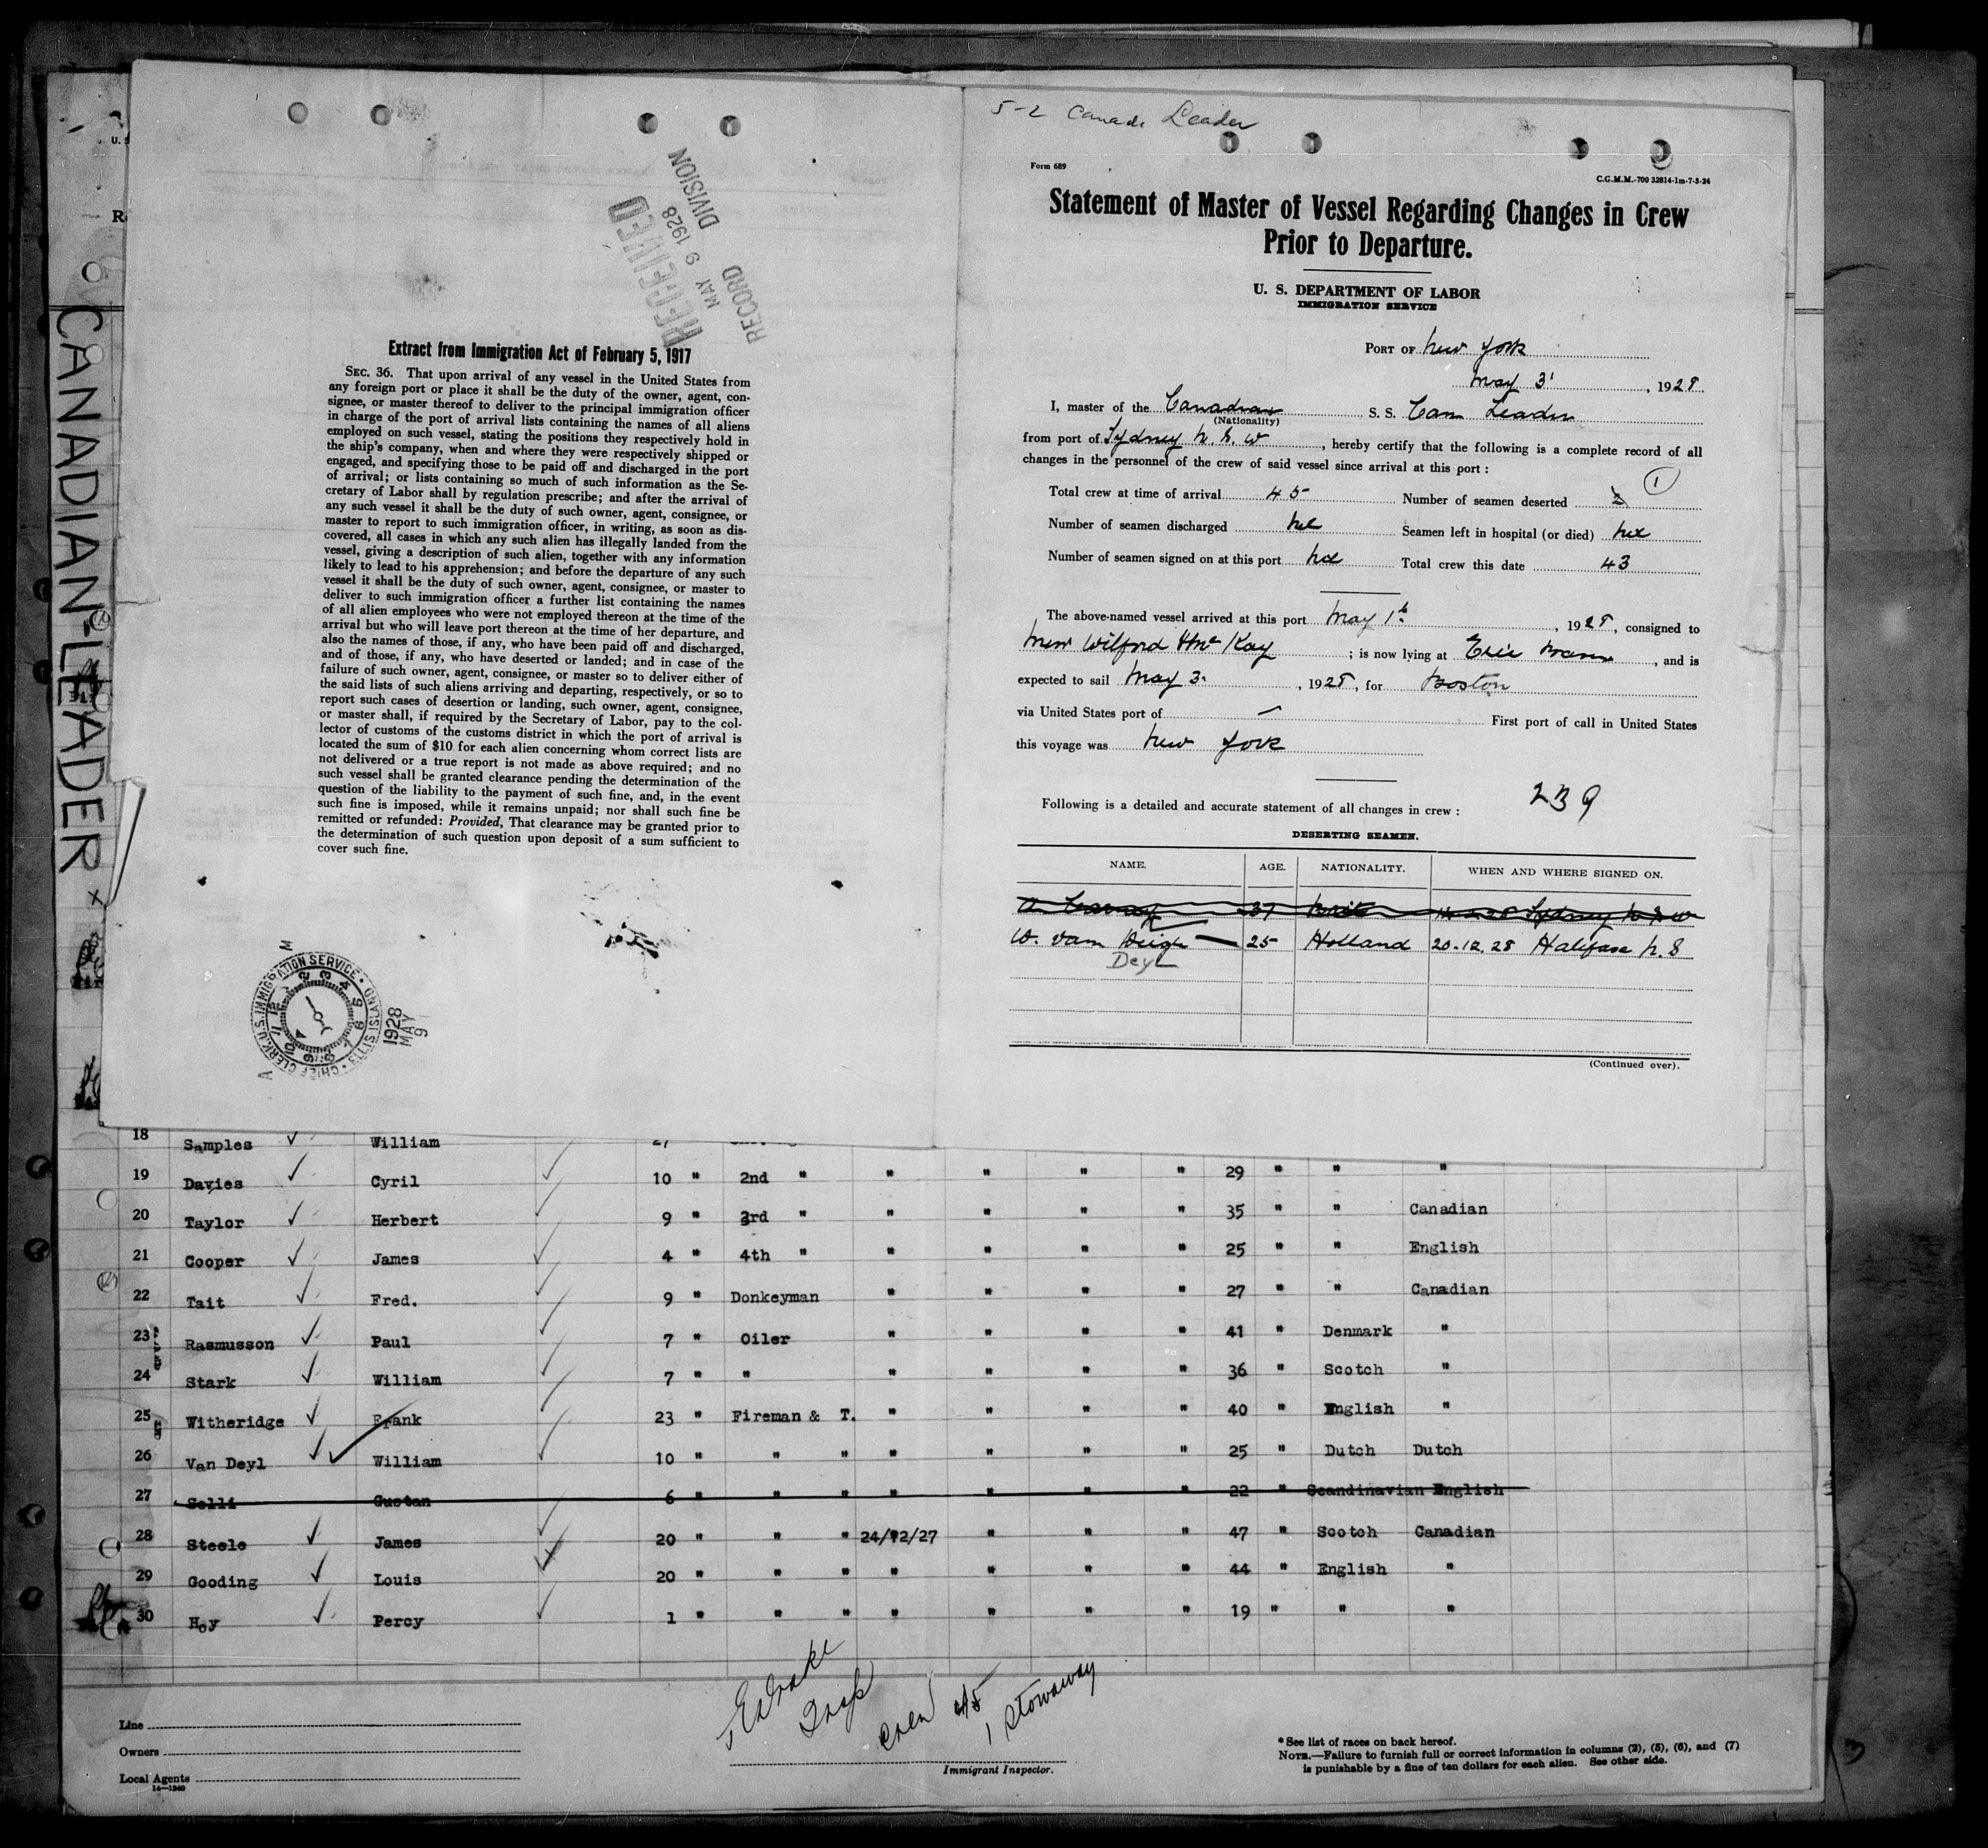 CANADIAN-LEADER
RECEIVED
MAY 9 1928
RECORD DIVISION
Extract from Immigration Act of February 5, 1917
SEC. 36. That upon arrival of any vessel in the United States from
any foreign port or place it shall be the duty of the owner, agent, con-
signee, or master thereof to deliver to the principal immigration officer
in charge of the port of arrival lists containing the names of all aliens
employed on such vessel, stating the positions they respectively hold in
the ship's company, when and where they were respectively shipped or
engaged, and specifying those to be paid off and discharged in the port
of arrival; or lists containing so much of such information as the Se-
cretary of Labor shall by regulation prescribe; and after the arrival of
any such vessel it shall be the duty of such owner, agent, consignee, or
master to report to such immigration officer, in writing, as soon as dis-
covered, all cases in which any such alien has illegally landed from the
vessel, giving a description of such alien, together with any information
likely to lead to his apprehension; and before the departure of any such
vessel it shall be the duty of such owner, agent, consignee, or master to
deliver to such immigration officer a further list containing the names
of all alien employees who were not employed thereon at the time of the
arrival but who will leave port thereon at the time of her departure, and
also the names of those, if any, who have been paid off and discharged,
and of those, if any, who have deserted or landed; and in case of the
failure of such owner, agent, consignee, or master so to deliver either of
the said lists of such aliens arriving and departing, respectively, or so to
report such cases of desertion or landing, such owner, agent, consignee,
or master shall, if required by the Secretary of Labor, pay to the col-
lector of customs of the customs district in which the port of arrival is
located the sum of $10 for each alien concerning whom correct lists are
not delivered or a true report is not made as above required; and no
such vessel shall be granted clearance pending the determination of the
question of the liability to the payment of such fine, and, in the event
such fine is imposed, while it remains unpaid; nor shall such fine be
remitted or refunded: Provided, That clearance may be granted prior to
the determination of such question upon deposit of a sum sufficient to
cover such fine.
CHIEF CLERK, U.S. IMMIGRATION SERVICE · ELLIS ISLAND
1928 MAY 9
5-2 Canadi Leader
Form 689
C.G.M.M.-700 32814-1m-7-3-24
Statement of Master of Vessel Regarding Changes in Crew
Prior to Departure.
U. S. DEPARTMENT OF LABOR
IMMIGRATION SERVICE
PORT OF New York
May 3, 1928
I, master of the Canadian S. S. Can Leader
(Nationality)
from port of Sydney N. S. W, hereby certify that the following is a complete record of all
changes in the personnel of the crew of said vessel since arrival at this port:
Total crew at time of arrival 45 Number of seamen deserted 2 1
Number of seamen discharged nil Seamen left in hospital (or died) nil
Number of seamen signed on at this port nil Total crew this date 43
The above-named vessel arrived at this port May 1st, 1928, consigned to
Mess Wilford & McKay; is now lying at Erie, and is
expected to sail May 3, 1928, for Boston
via United States port of — First port of call in United States
this voyage was New York
239
Following is a detailed and accurate statement of all changes in crew:
DESERTING SEAMEN.
NAME. AGE. NATIONALITY. WHEN AND WHERE SIGNED ON.
37 Brit Sydney N S W
W. Van 25 Holland 20-12-28 Halifax N. S
Deyl
(Continued over).
18 Samples William 27
19 Davies Cyril 10 " 2nd " " " " " 29 " " "
20 Taylor Herbert 9 " 3rd " " " " " 35 " " Canadian
21 Cooper James 4 " 4th " " " " " 25 " " English
22 Tait Fred. 9 " Donkeyman " " " " 27 " " Canadian
23 Rasmusson Paul 7 " Oiler " " " " 41 " Denmark "
24 Stark William 7 " " " " " " 36 " Scotch "
25 Witheridge Frank 23 " Fireman & T. " " " " 40 " English "
26 Van Deyl William 10 " " " " " " " 25 " Dutch Dutch
27 Selli Gustan 6 " " " " " " " 22 " Scandinavian English
28 Steele James 20 " " " 24/12/27 " " " 47 " Scotch Canadian
29 Gooding Louis 20 " " " " " " " 44 " English "
30 Hoy Percy 1 " " " " " " " 19 " " "
E Drake
Insp
Crew 45
1 Stowaway
Line
Owners
Local Agents
14—1240
Immigrant Inspector.
* See list of races on back hereof.
NOTE.—Failure to furnish full or correct information in columns (2), (5), (6), and (7)
is punishable by a fine of ten dollars for each alien. See other side.
3